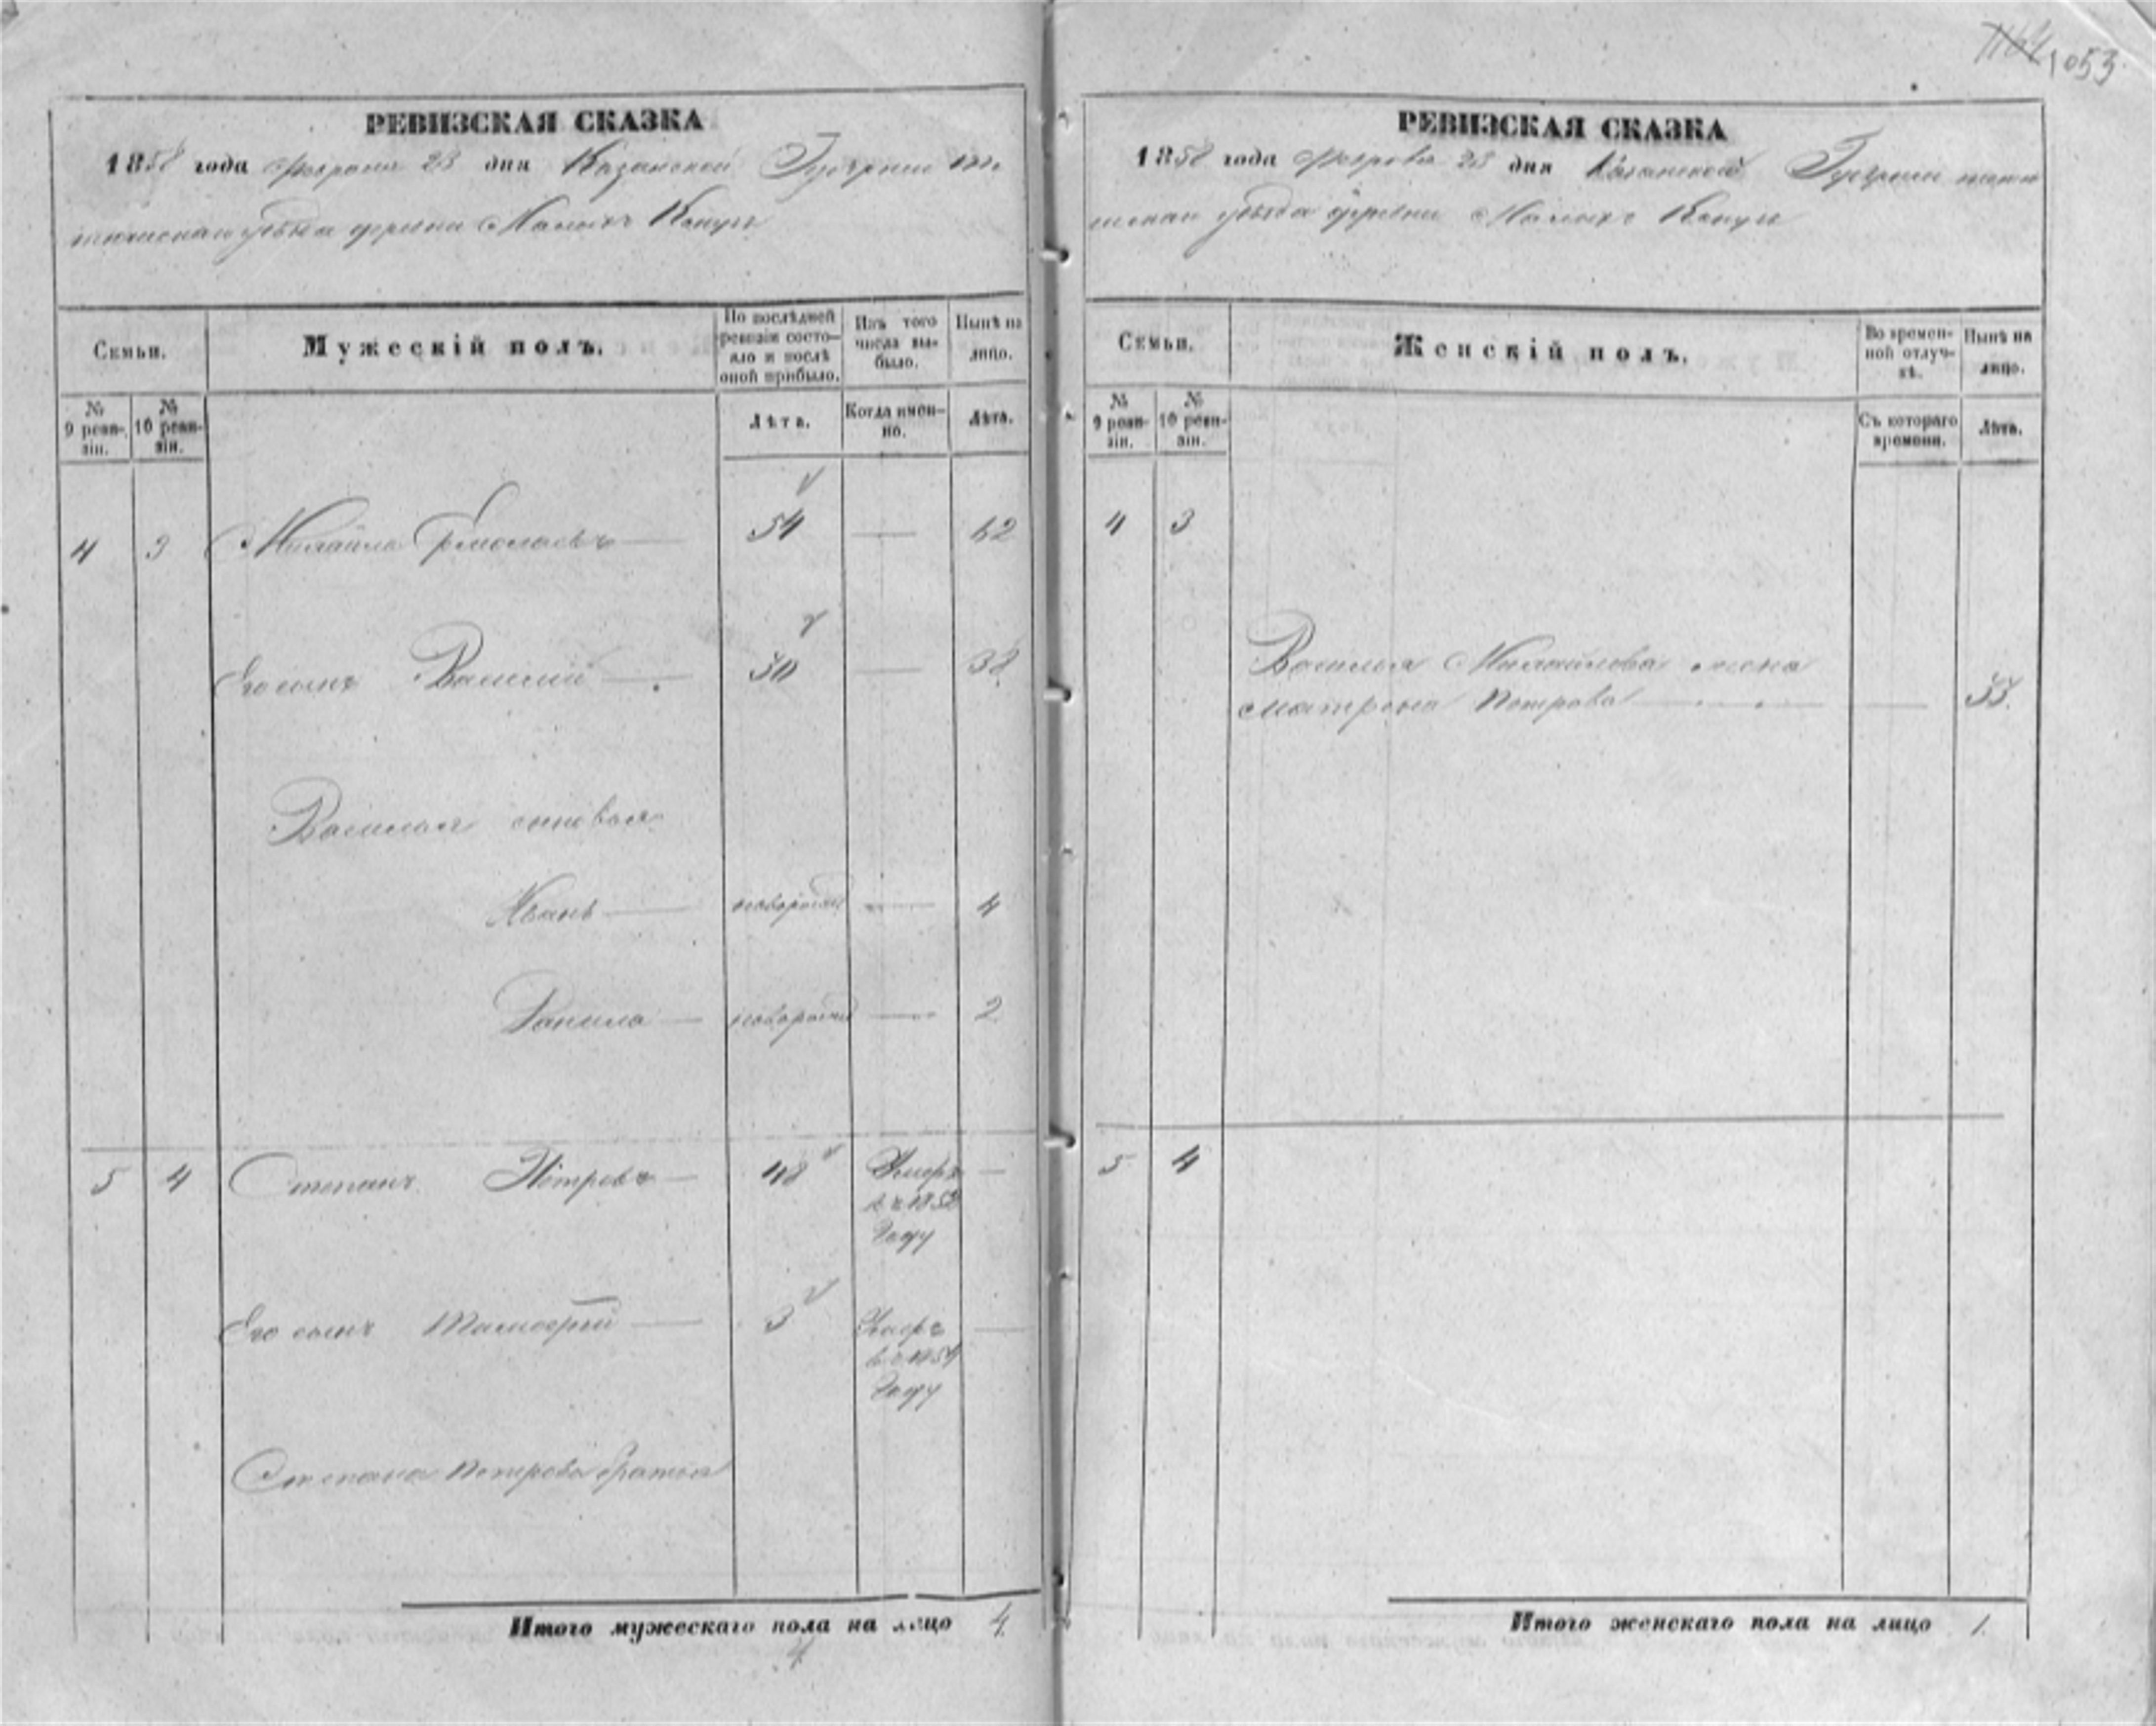 1053
РЕВИЗСКАЯ СКАЗКА
1858 года Февраля 28 дня Казанской Губернiи
уѣзда деревни Малыхъ
Семьи.
Мужескiй полъ.
По послѣдней ревизiи состояло и послѣ оной прибыло.
Изъ того числа выбыло.
Нынѣ на лицо.
№ 9 ревизiи.
№ 10 ревизiи.
Лѣта.
Когда именно.
Лѣта.
4 3 Михайла Ермолаевъ — 54 — 62
Его сынъ Василiй — 30 — 38
Василья сыновья
Иванъ — новорожд — 4
Данила — новорожд — 2
5 4 Степанъ Петровъ — 48 Умеръ —
въ 1852
году
Его сынъ — 3 Умеръ —
въ 1854
году
Степана Петрова братья
Итого мужескаго пола на лицо 4
4
РЕВИЗСКАЯ СКАЗКА
1858 года Февраля 28 дня Казанской Губернiи
уѣзда деревни Малыхъ
Семьи.
Женскiй полъ.
Во временной отлучкѣ.
Нынѣ на лицо.
№ 9 ревизiи.
№ 10 ревизiи.
Съ котораго времени.
Лѣта.
4 3
Василья Михайлова жена
Матрена Петрова — — 33
5 4
Итого женскаго пола на лицо 1.